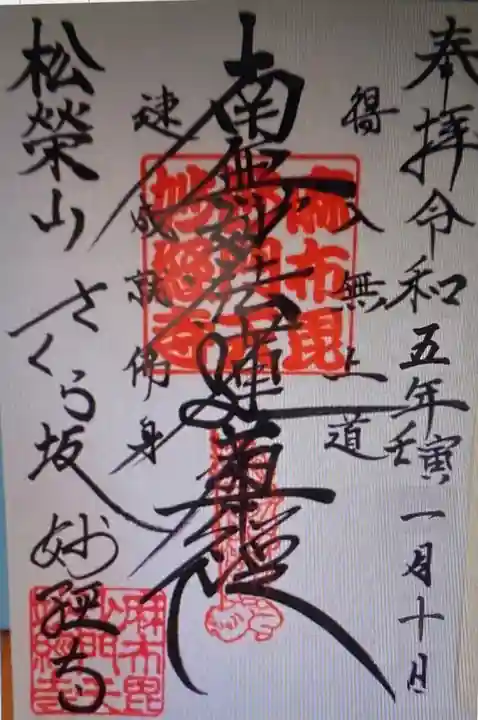 奉拝 令和五年壬寅一月十日
得入無上道
南無妙法蓮華経
速成就佛身
松榮山 さくら坂 妙経寺
麻布毘
沙門天
妙經寺
麻布毘
沙門天
妙經寺